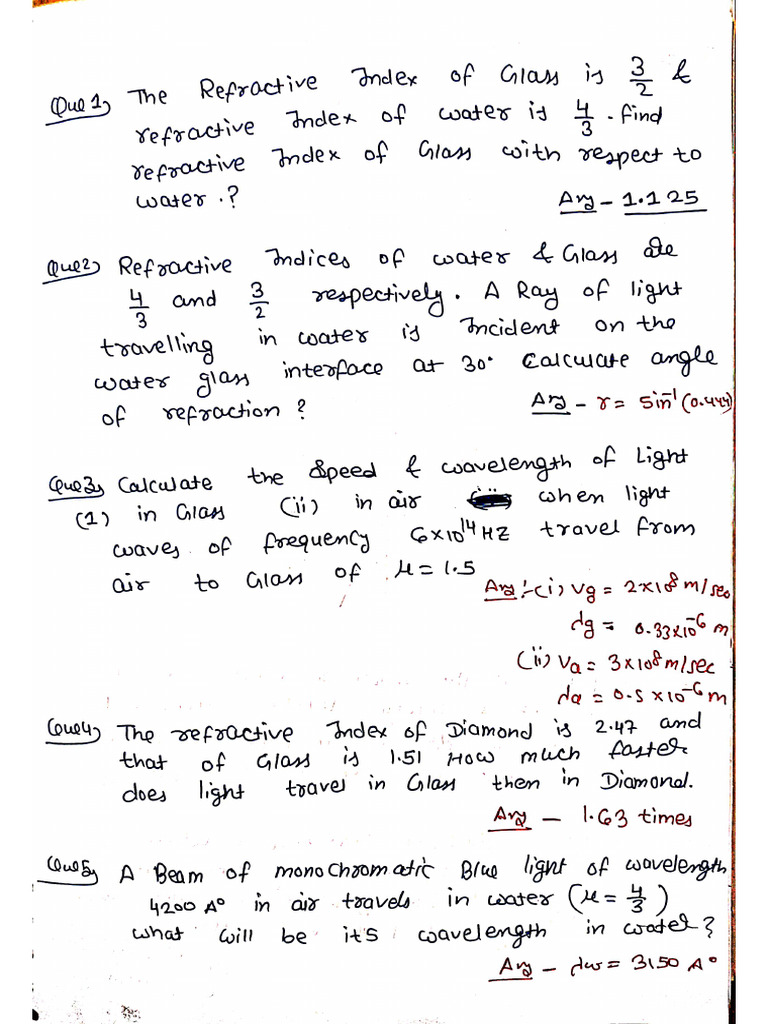 Que 1) The Refractive Index of Glass is 3/2 &
refractive Index of water is 4/3 . find
refractive Index of Glass with respect to
water .?
Ans - 1.125
Que2) Refractive Indices of water & Glass are
4/3 and 3/2 respectively. A Ray of light
travelling in water is Incident on the
water glass interface at 30° Calculate angle
of refraction ?
Ans - r = Sin⁻¹ (0.444)
Que3) Calculate the Speed & wavelength of Light
(1) in Glass (ii) in air when light
waves of frequency 6×10¹⁴ HZ travel from
air to Glass of μ = 1.5
Ans :- (i) Vg = 2×10⁸ m/sec
λg = 0.33×10⁻⁶ m
(ii) Va = 3×10⁸ m/sec
λa = 0.5 ×10⁻⁶ m
Que4) The refractive Index of Diamond is 2.47 and
that of Glass is 1.51 How much faster
does light travel in Glass then in Diamond.
Ans - 1.63 times
Que5) A Beam of monochromatic Blue light of wavelength
4200 A° in air travels in water (μ = 4/3)
what will be it's wavelength in water?
Ans - λw = 3150 A°